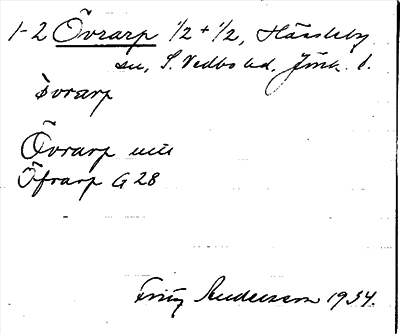 1-2 Övrarp 1/2 + 1/2, Hässleby
sn, S. Vedbo hd. Jönk. l.
ovrarp
Övrarp
Öfrarp G 28
Andersson 1934.